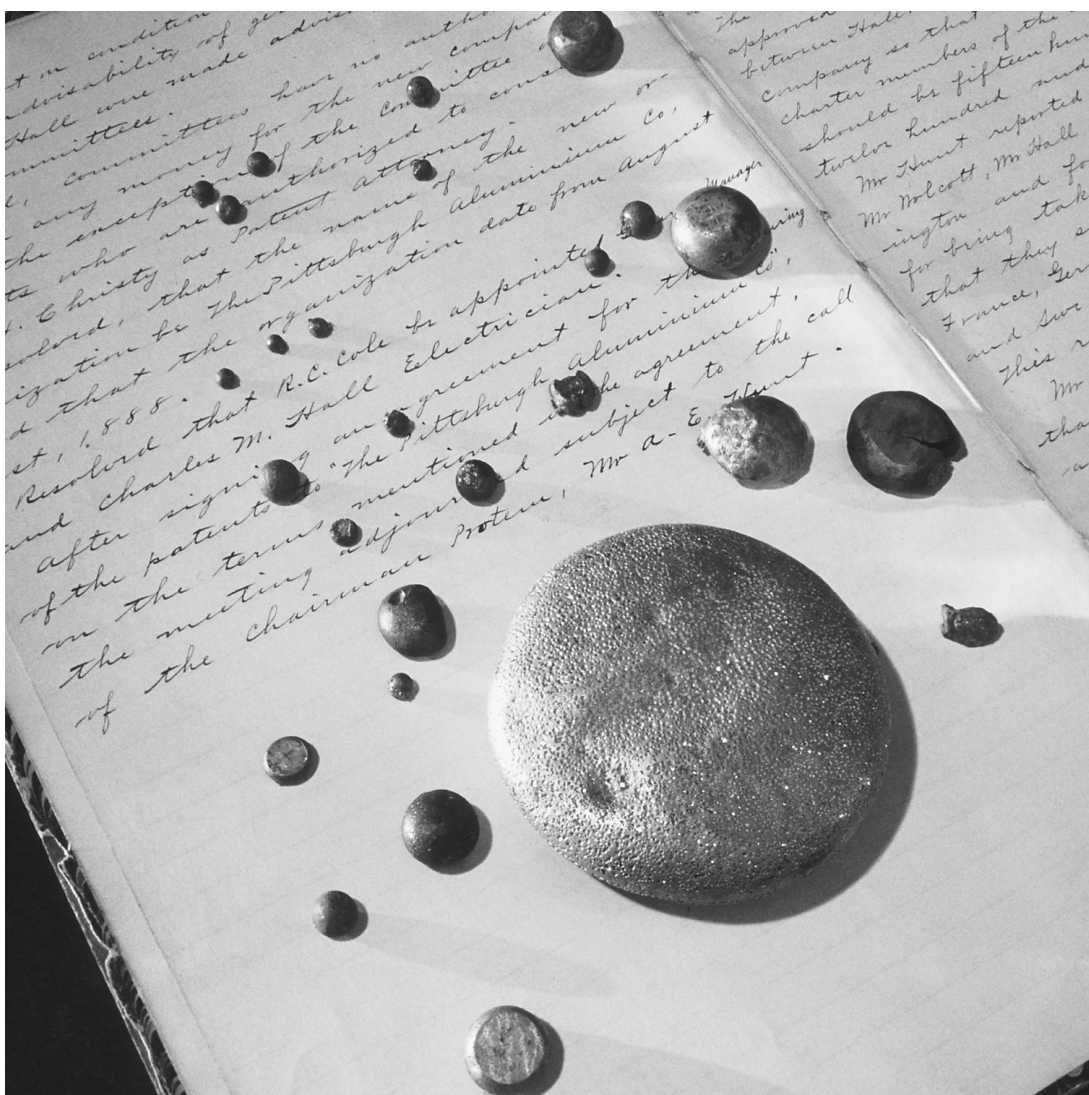 t on condition
advisability of
Hall were made
mmittees.
committees have no
any money for the new
the exception of the committee
ts who are authorized to
. Christy as Patent Attorney.
solved, that the name of the new or-
ization be The Pittsburgh Aluminium Co,
d that the organization date from August
st, 1888.
Resolved that R.C. Cole be appointed Manager
and Charles M. Hall Eelectrician.
After signing an agreement for the
of the patents to "The Pittsburgh Aluminium Co",
on the terms mentioned in the agreement,
the meeting adjourned subject to the call
of the Chairman Protem, Mr A. E. Hunt.
The
approved
between Hall
company so that
charter members of the
should be fifteen
twelve hundred and
Mr Hunt reported
Mr Wolcott, Mr Hall
ington and
for bring
that they
France, Ger
and Swe
This
Mr
tha